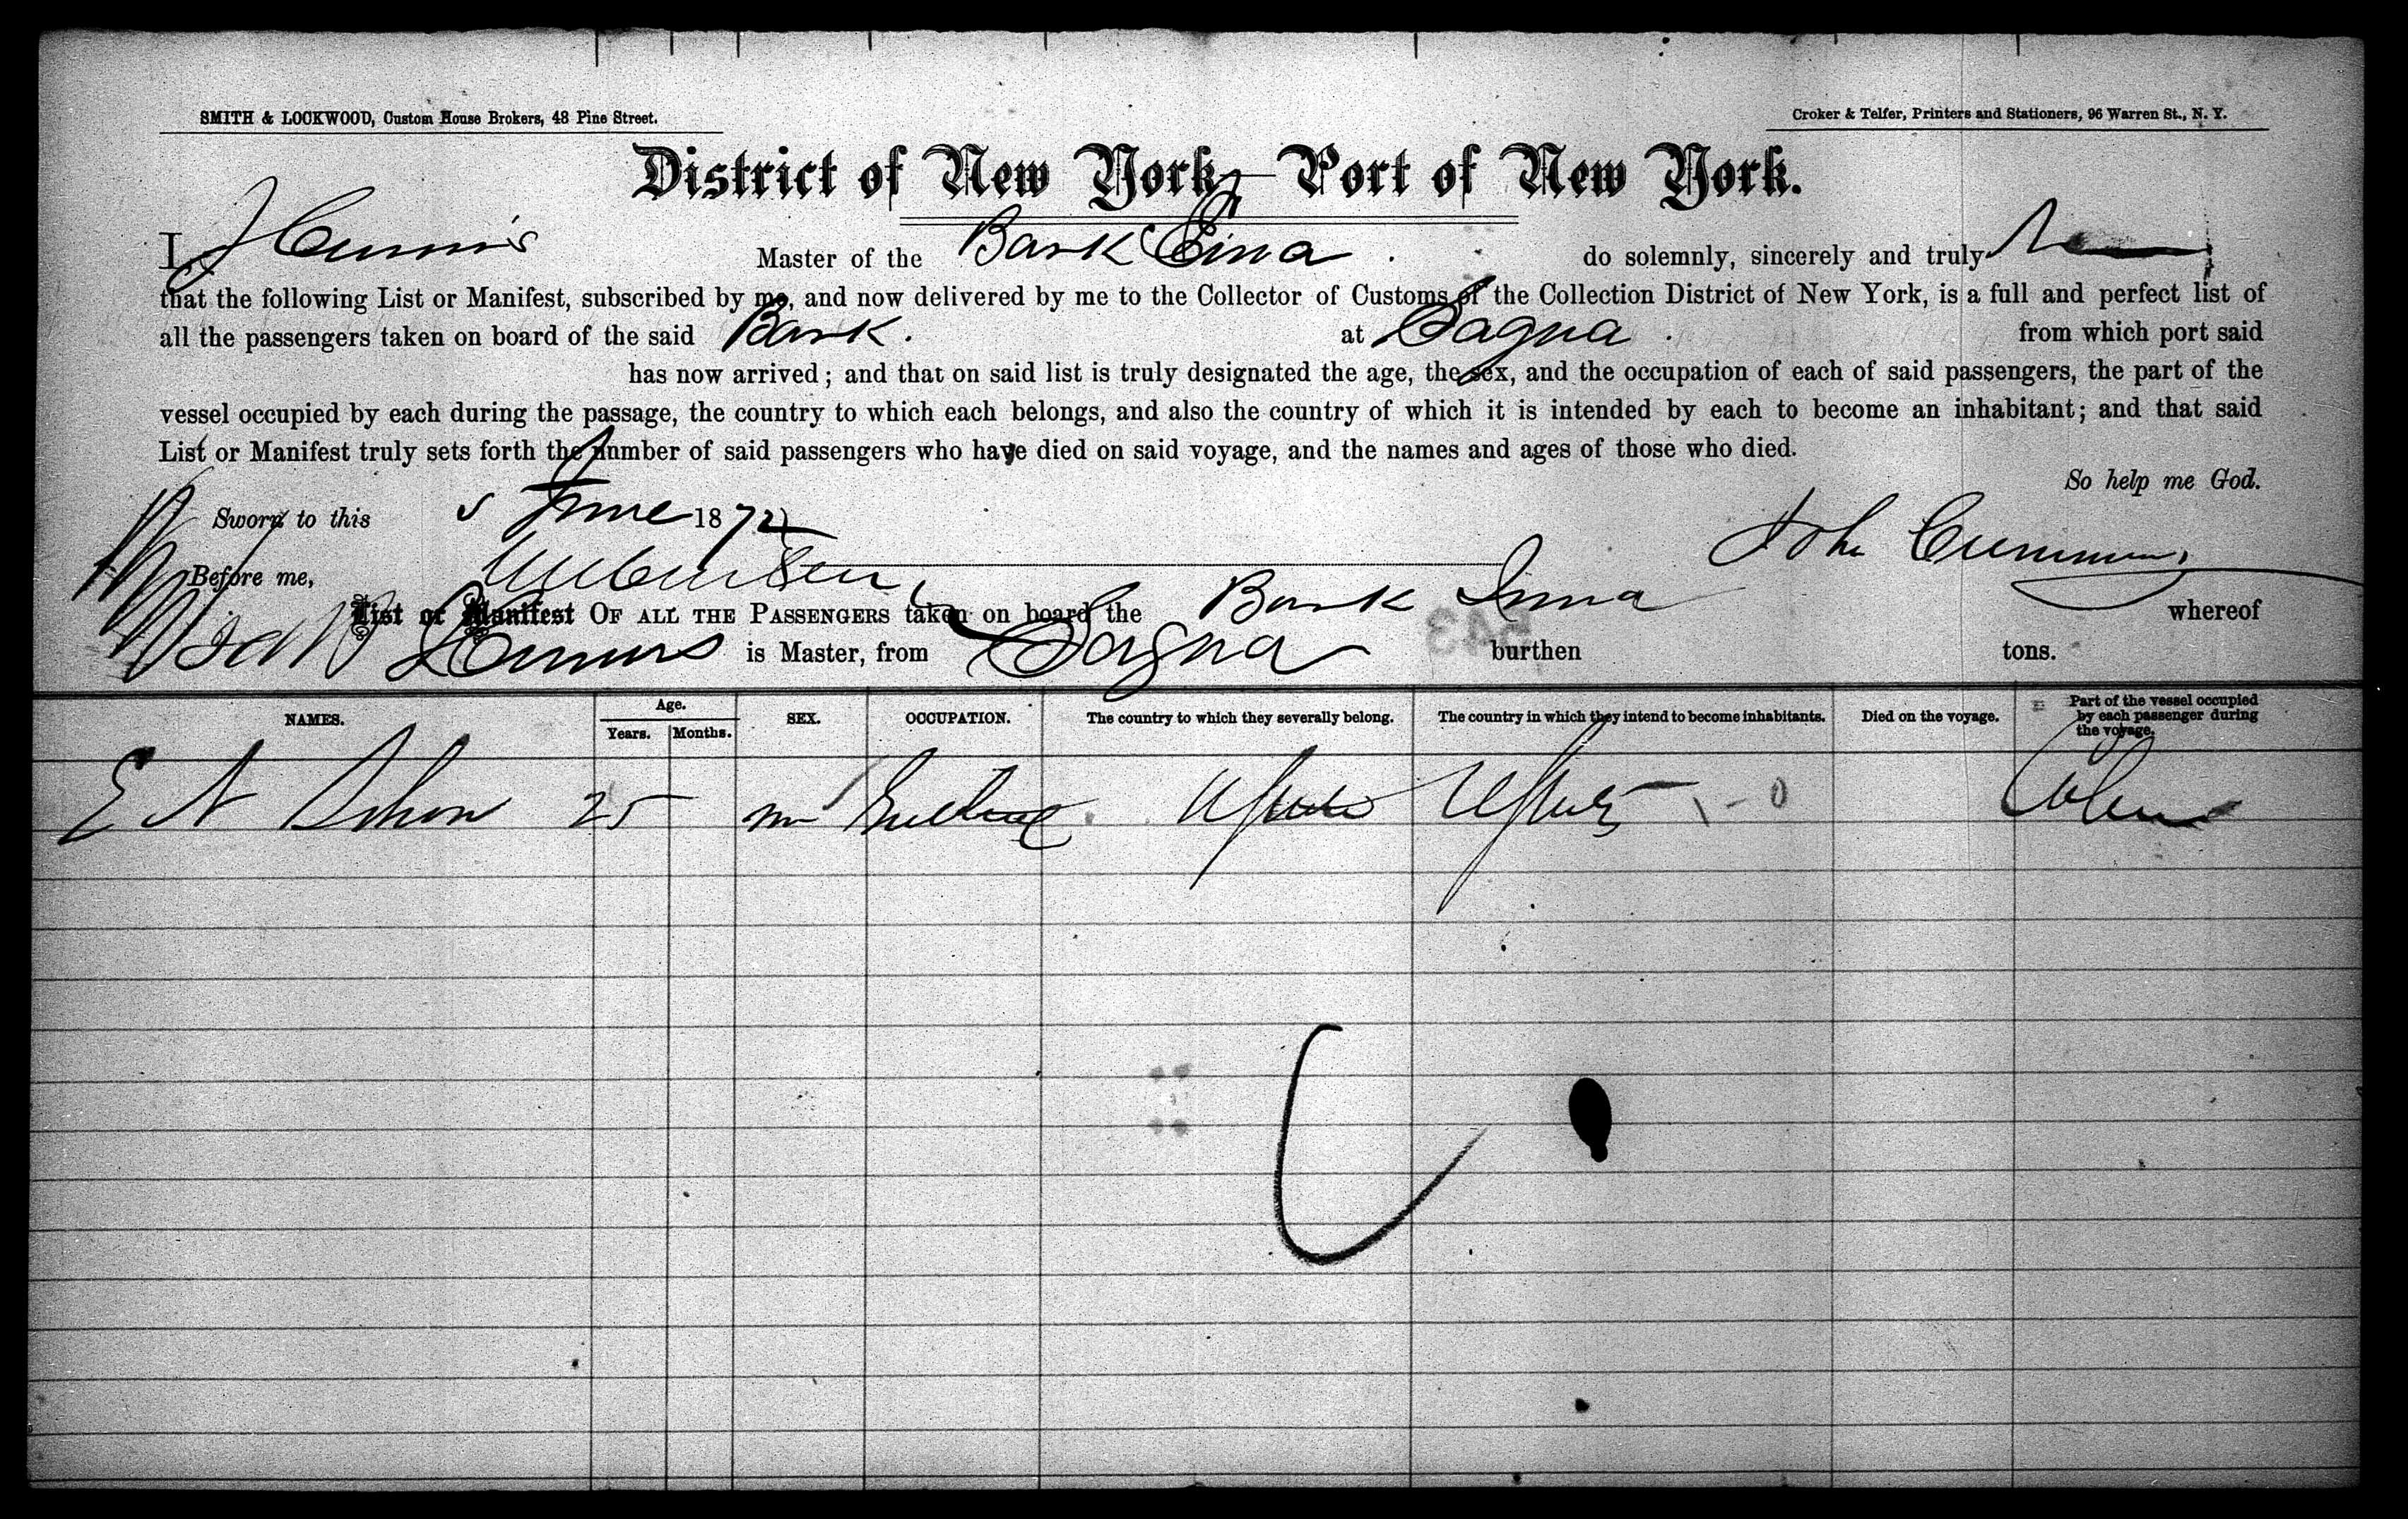 SMITH & LOCKWOOD, Custom House Brokers, 48 Pine Street.
Croker & Telfer, Printers and Stationers, 96 Warren St., N. Y.
District of New York, Port of New York.
I, J Master of the Bark do solemnly, sincerely and truly
that the following List or Manifest, subscribed by me, and now delivered by me to the Collector of Customs of the Collection District of New York, is a full and perfect list of
all the passengers taken on board of the said Bark. at Sagua. from which port said
has now arrived; and that on said list is truly designated the age, the sex, and the occupation of each of said passengers, the part of the
vessel occupied by each during the passage, the country to which each belongs, and also the country of which it is intended by each to become an inhabitant; and that said
List or Manifest truly sets forth the number of said passengers who have died on said voyage, and the names and ages of those who died.
So help me God.
Sworn to this 5 June 1872
John
Before me,
List or Manifest OF ALL THE PASSENGERS taken on board the Bark whereof
is Master, from Sagua burthen tons.
543
NAMES. Age. Years. Months. SEX. OCCUPATION. The country to which they severally belong. The country in which they intend to become inhabitants. Died on the voyage. Part of the vessel occupied by each passenger during the voyage.
E A 25 m U States U States 1-0